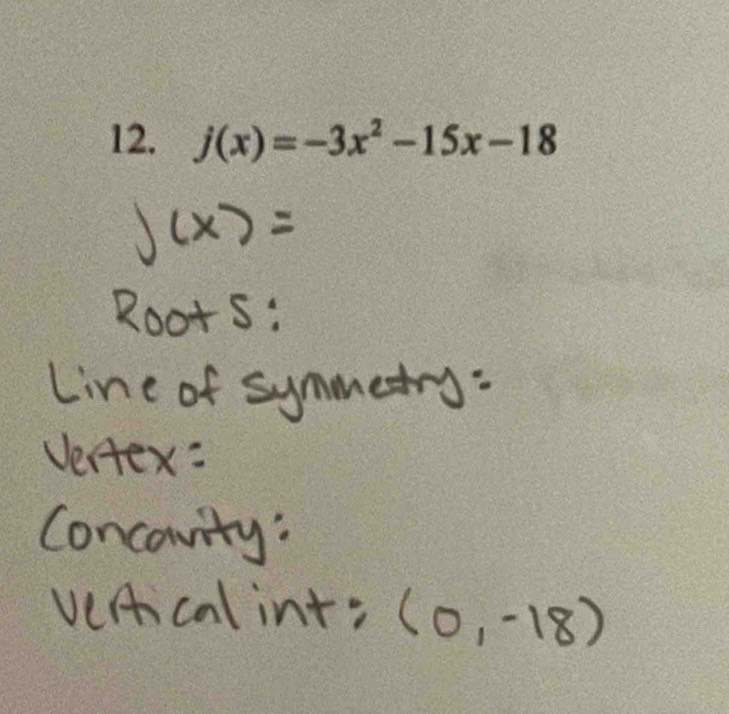 12. j(x)=-3x²-15x-18
j(x) =
Roots:
Line of symmetry:
Vertex:
Concavity:
Vertical int: (0,-18)